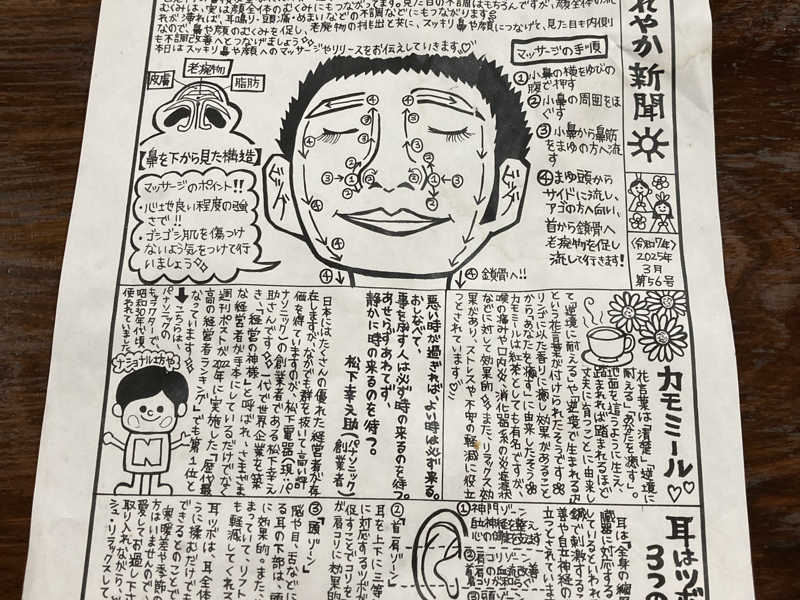 れやか新聞
〈令和7年〉
2025年
3月
第56号
むくみは、実は顔全体のむくみにもつながってます。見た目の不調はもちろんですが、顔全体の流
れが滞れば、耳鳴り・頭痛・めまいなどの不調などにもつながります。
なので、鼻や顔のむくみを促し、老廃物の排出と共に、スッキリ鼻や顔につなげると、見た目も内側
も不調改善へとつなげましょう
本日はスッキリ鼻や顔へのマッサージやリリースをお伝えしていきます。
マッサージの手順
①小鼻の横をゆびの
腹で押す
②小鼻の周囲をほ
ぐす
③小鼻から鼻筋
をまゆの方へ流
す
④まゆ頭から
サイドに流し、
アゴの方へ向い、
首から鎖骨へ
老廃物を促し
流して行きます!
皮膚
老廃物
脂肪
【鼻を下から見た構造】
マッサージのポイント!!
・心地良い程度の強
さで!!
・ゴシゴシ肌を傷つけ
ないよう気をつけて行
いましょう
④
④鎖骨へ!!
カモミール
花言葉は「清楚」「逆境に
耐える」「あなたを癒す」。
地面を這うように生え、
踏まれれば踏まれるほど
丈夫に育つことに由来し
て「逆境に耐える」や「逆境で生まれる力」
という花言葉が付けられたそうです
リンゴに似た香りに癒し効果があること
から「あなたを癒す」に由来したそう
カモミールは紅茶としても有名ですが、
喉の痛みや口内炎、消化器系の炎症症状
などに対して効果的。またリラックス効
果があり、ストレスや不安の軽減に役立
つとされています
悪い時が過ぎれば、よい時は必ず来る。
おしなべて、
事を成す人は必ず時の来るのを待つ。
あせらずあわてず、
静かに時の来るのを待つ。
松下幸之助(パナソニック創業者)
日本にはたくさんの優れた経営者が存
在しますが、なかでも群を抜いて高い評
価を得ていますのが、松下電器(現:パ
ナソニック)の創業者である松下幸之
助さんです。一代で世界企業を築
き、「経営の神様」と呼ばれ、さまざま
な経営者が手本にしているだけでなく
週刊ポストが2022年に実施した「歴代最
高の経営者ランキング」でも第1位と
なっています
こちらは、
パナソニックの
キャラクターで、
昭和30年代頃、
使われていました
ナショナル坊や
N
耳はツボ
3つの
耳は「全身の縮図」
臓器に対応する
しているといわれ
鍼で刺激する
善や自立神経の
立つとされています
②「首・肩ゾーン」
耳を上下に三等
に対応するツボが
促すことでコリを
が肩コリに効果的
③「頭ゾーン」
脳や目、舌などに
る耳の下部は、頭
に効果的。また、
まっていて、リフト
も軽減してくれる
耳ツボは、耳全体
うに揉むだけでも
できるとのことで
寒暖差や季節の
方はいませんので、
愛してお過し下
取り入れながら、
シュ・リラックスして